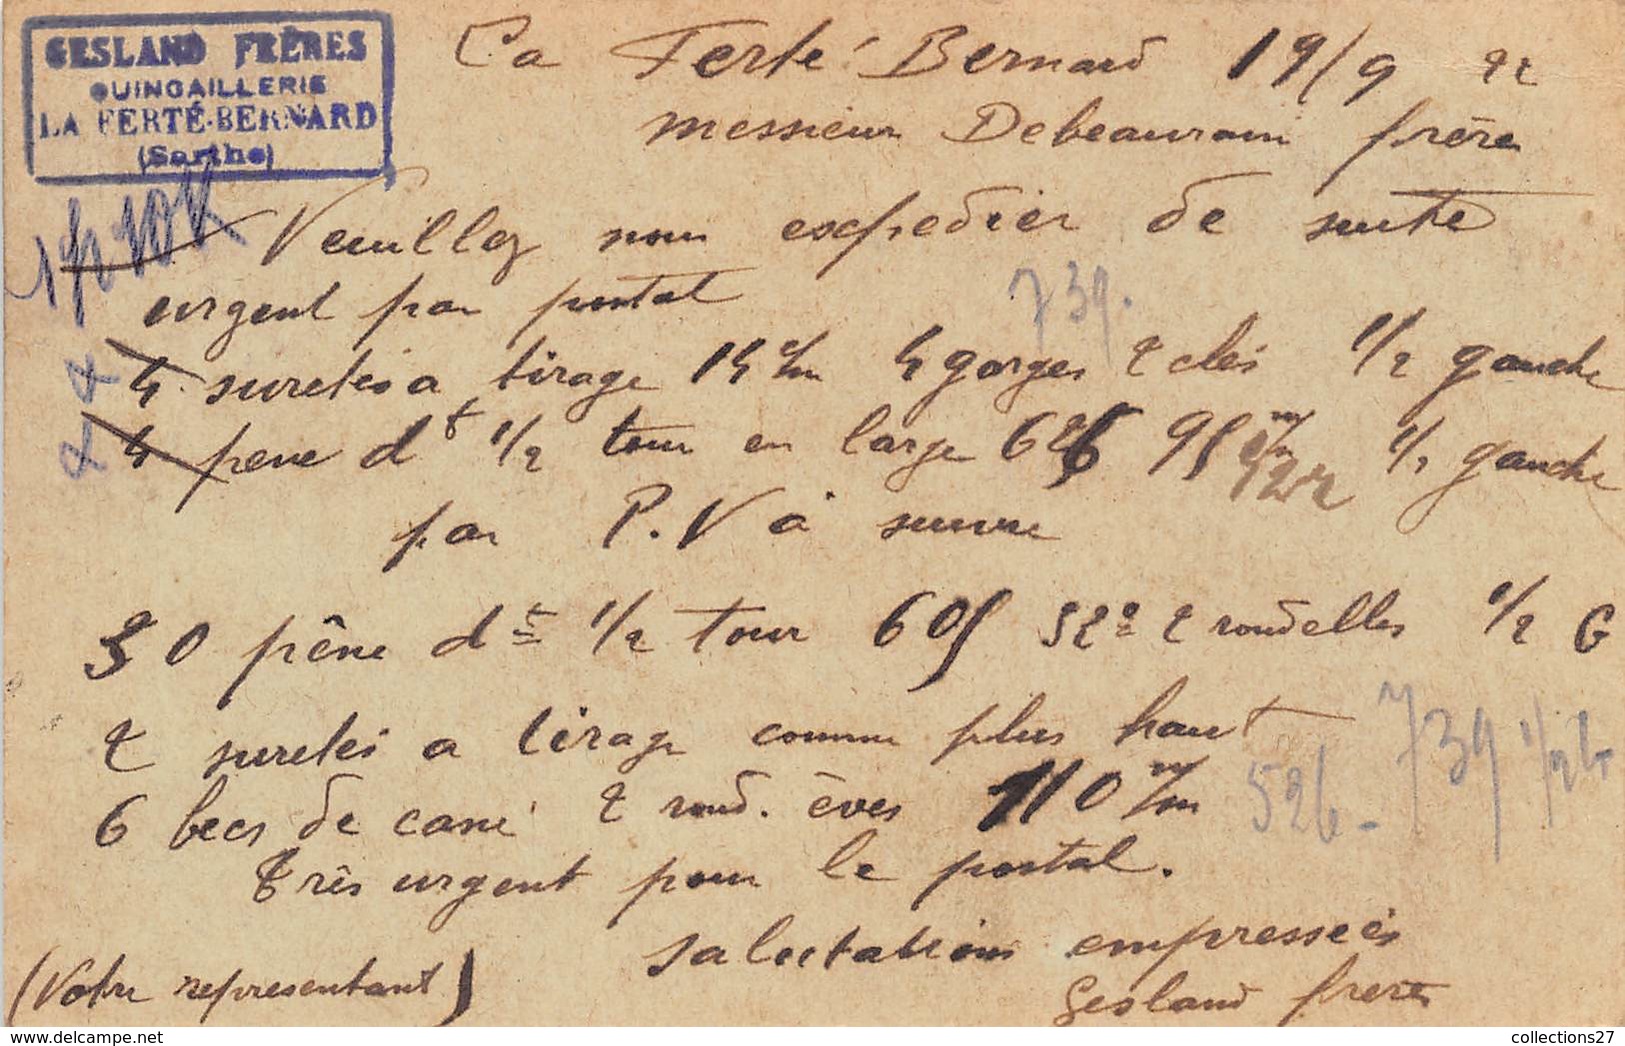 GESLAND FRÈRES
QUINCAILLERIE
LA FERTÉ-BERNARD
(Sarthe)
La Ferté Bernard 19/9 22
Messieurs Debeaurain frères
Veuillez nous expedier de suite
urgent par postal
739.
4 suretés a tirage 14 c/m 4 gorges 2 clés 1/2 gauche
4 pene dt 1/2 tour en large 626 95 m/m 1/2 gauche
par P.V à suivre
30 pêne dt 1/2 tour 605 2 rondelles 1/2 G
2 suretés a tirage comme plus haut
739 1/2 G
6 becs de cane 2 rond. èves 110 m/m
526-
Très urgent pour le postal.
salutations empressées
(Votre representant)
Gesland freres
collections27